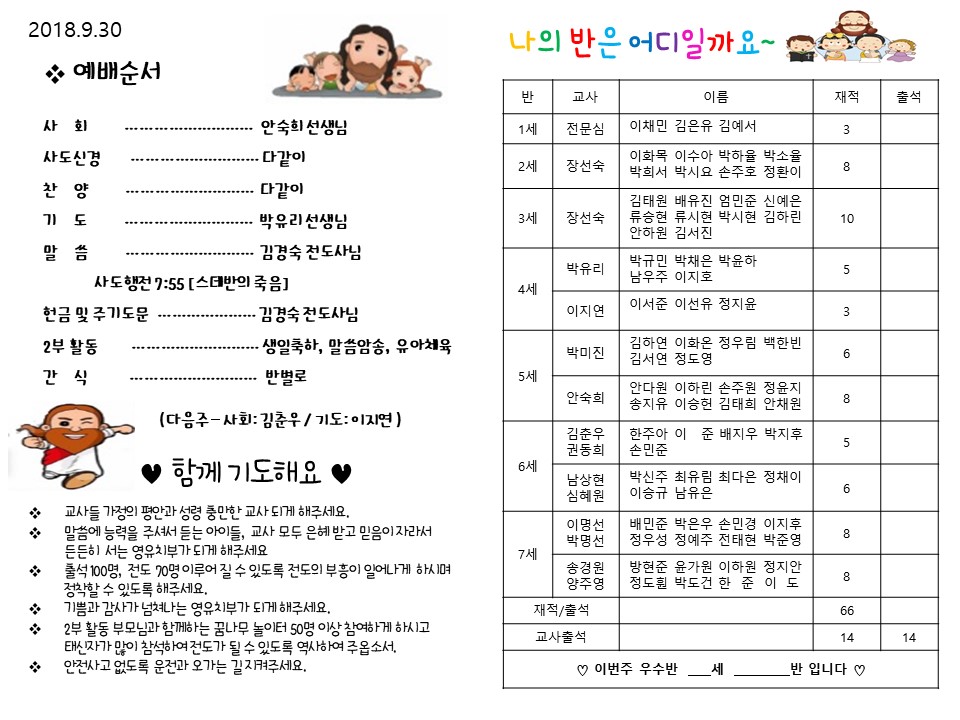 2018.9.30
❖ 예배순서
사 회 --------------------------- 안숙희 선생님
사도신경 --------------------------- 다같이
찬 양 --------------------------- 다같이
기 도 --------------------------- 박유리 선생님
말 씀 --------------------------- 김경숙 전도사님
사도행전 7:55 [스데반의 죽음]
헌금 및 주기도문 --------------------- 김경숙 전도사님
2부 활동 --------------------------- 생일축하, 말씀암송, 유아체육
간 식 --------------------------- 반별로
(다음주 – 사회: 김춘우 / 기도: 이지연 )
♥ 함께 기도해요 ♥
❖ 교사들 가정의 평안과 성령 충만한 교사 되게 해주세요.
❖ 말씀에 능력을 주셔서 듣는 아이들, 교사 모두 은혜 받고 믿음이 자라서
든든히 서는 영유치부가 되게 해주세요
❖ 출석 100명, 전도 70명 이루어 질 수 있도록 전도의 부흥이 일어나게 하시며
정착할 수 있도록 해주세요.
❖ 기쁨과 감사가 넘쳐나는 영유치부가 되게 해주세요.
❖ 2부 활동 부모님과 함께하는 꿈나무 놀이터 50명 이상 참여하게 하시고
태신자가 많이 참석하여 전도가 될 수 있도록 역사하여 주옵소서.
❖ 안전사고 없도록 운전과 오가는 길 지켜주세요.
나의 반은 어디일까요~
반 교사 이름 재적 출석
1세 전문심 이채민 김은유 김예서 3
2세 장선숙 이화목 이수아 박하율 박소율 8
박희서 박시요 손주호 정환이
3세 장선숙 김태원 배유진 엄민준 신예은 10
류승현 류시현 박시현 김하린
안하원 김서진
4세 박유리 박규민 박채은 박윤하 5
남우주 이지호
이지연 이서준 이선유 정지윤 3
5세 박미진 김하연 이화온 정우림 백한빈 6
김서연 정도영
안숙희 안다원 이하린 손주원 정윤지 8
송지유 이승헌 김태희 안채원
6세 김춘우 한주아 이 준 배지우 박지후 5
권동희 손민준
남상현 박신주 최유림 최다은 정채이 6
심혜원 이승규 남유은
7세 이명선 배민준 박은우 손민경 이지후 8
박명선 정우성 정예주 전태현 박준영
송경원 방현준 윤가원 이하원 정지안 8
양주영 정도훤 박도건 한 준 이 도
재적/출석 66
교사출석 14 14
♡ 이번주 우수반 ___세 ________반 입니다 ♡